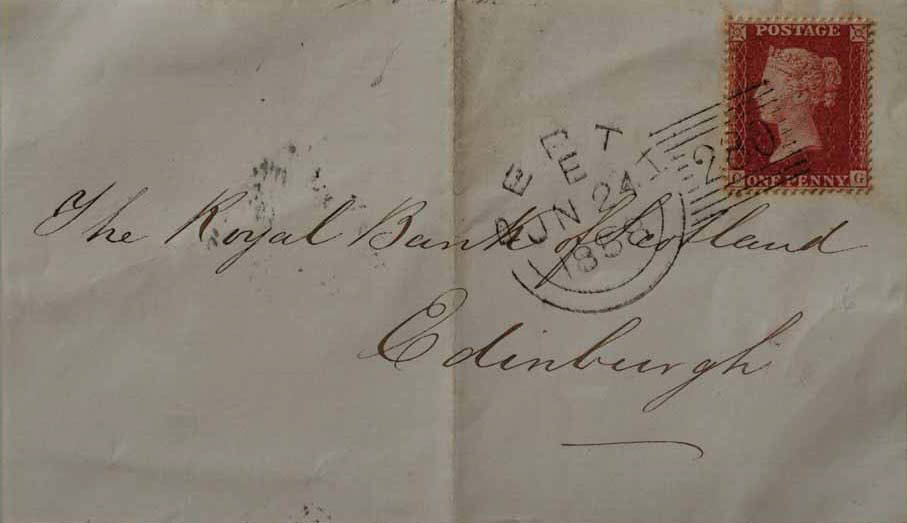 POSTAGE
ONE PENNY
G
280
E
JUN 24
1858
The Royal Bank of Scotland
Edinburgh